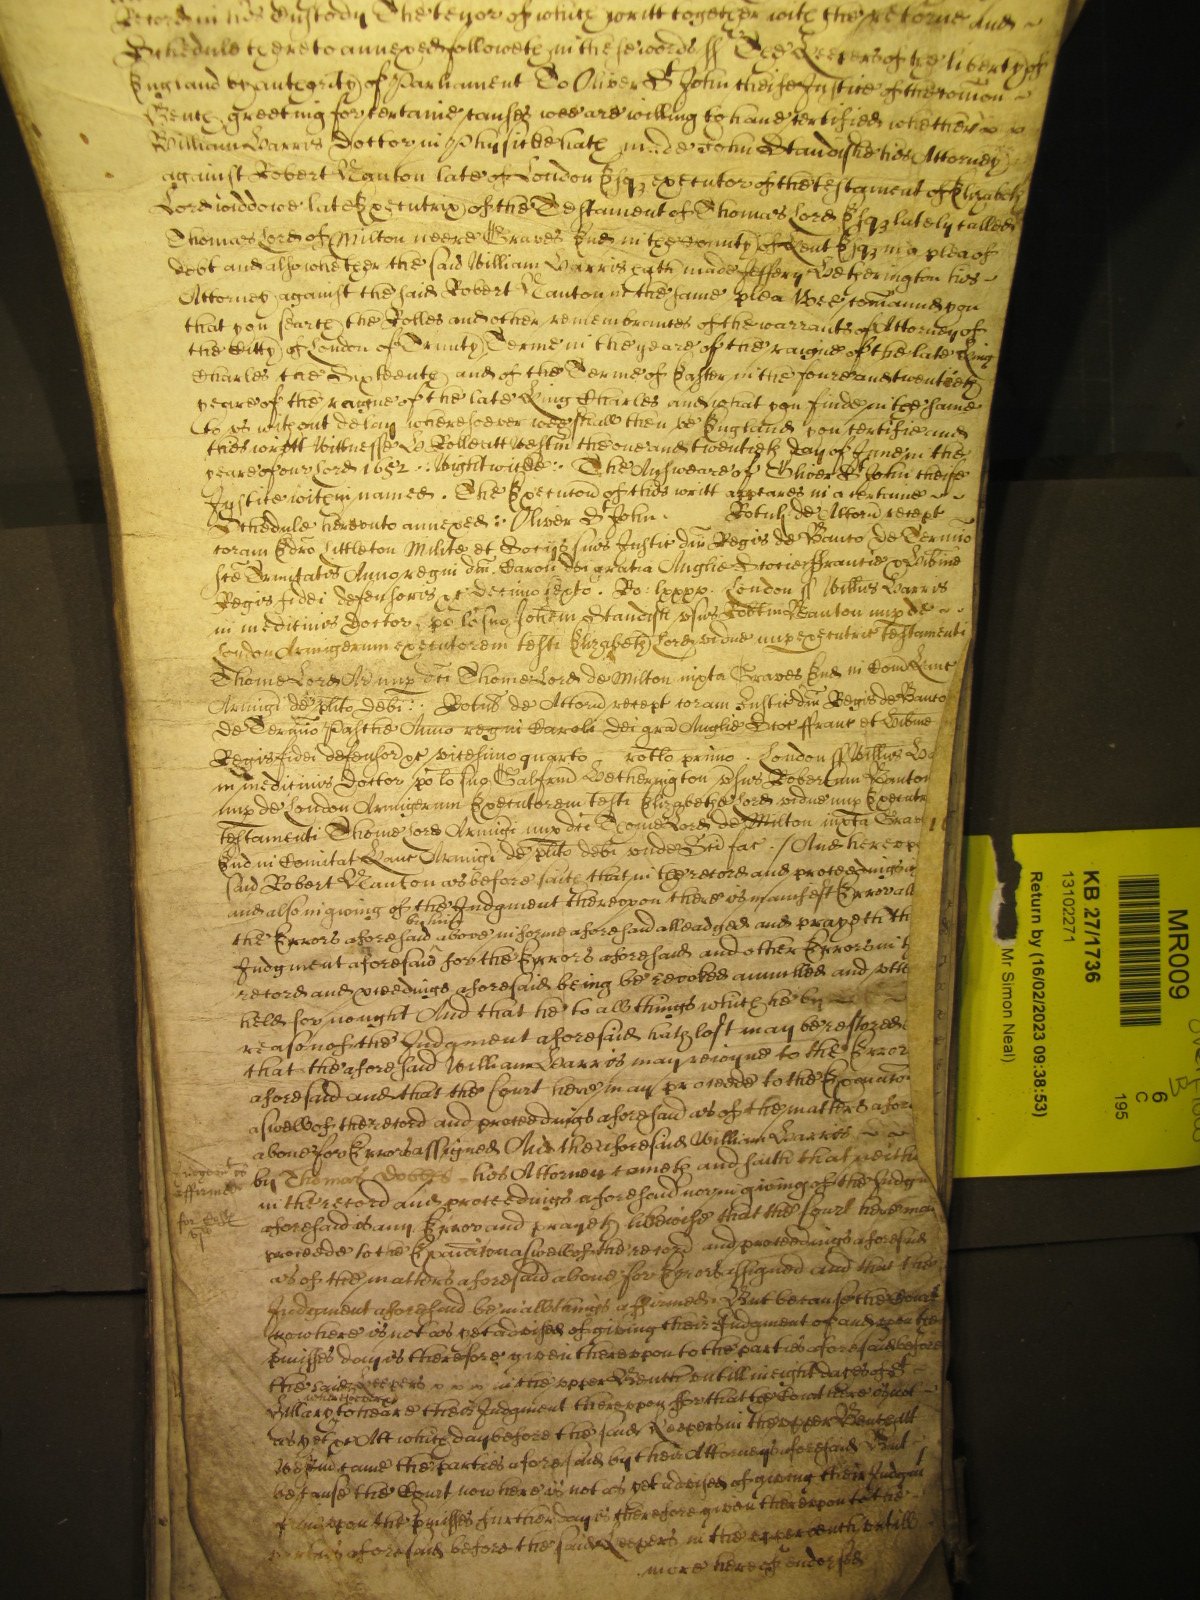 Record in his Custody The tenor of which writt together with the returne and
Schedule thereto annexed followeth in these words ss The Keepers of the liberty of
England by authority of Parliament To Oliver St John cheife Justice of the comon
Bench greeting for certaine causes wee are willing to have certified whether
William Harris Doctor in Phisicke hath made John Standishe his Attorney
against Robert Nanton late of London Esqr executor of the testament of Elizabeth
Lord widdowe late Executrix of the Testament of Thomas Lord Esqr lately called
Thomas Lord of Milton neere Graves End in the County of Kent Esqr in a plea of
debt and also whether the said William Harris hath made Jeffery Hetherington his
Attorney against the said Robert Nanton in the same plea Wee comaund you
that you search the Rolles and other remembrances of the warrants of Attorney of
the Citty of London of Trinity Terme in the yeare of the raigne of the late King
Charles the Sixteenth and of the Terme of Easter in the foure and twentieth
yeare of the raigne of the late King Charles and what you finde in the same
to us without delay wheresoever wee shall then be England you certifie and
this writt Wittnesse H Rolle att Westm the one and twentieth day of June in the
yeare of our Lord 1652 . Wightwicke . The Answeare of Oliver St John cheife
Justice within named . The Execucon of this writt appeares in a certaine
Schedule hereunto annexed : Oliver St John . Rotul de Attorn recept
coram Edro Littleton Milite et Socijs suis Justic dni Regis de Banco de Termino
sce Trinitatis Anno regni dni Caroli dei gratia Anglie Scocie Francie et Hibnie
Regis fidei defensoris &c decimo sexto . Ro: lxxxo . London ss Willius Harris
in medicinis Doctor po lo suo Johem Standish vsus Robtum Nanton nup de
London Armigerum executorem testi Elizabeth Lord vidue nup executric testamenti
Thome Lord Ar nup dci Thome Lord de Milton iuxta Graves End in Com Kanc
Armigi de plito debi : Rotus de Attorn recept coram Justic dni Regis de Banco
de Termino Pasche Anno regni Caroli dei gra Anglie Scoc ffranc et Hibnie
Regis fidei defensor &c vicesimo quarto rotlo primo . London ss Willius Ha
in medicinis Doctor po lo suo Galfrid Hetherington vsus Robertum Nanton
nup de London Armigerum Executorem testi Elizabethe Lord vidue nup Execut
testamenti Thome Lord Armigi nup dci Thome Lord de Milton iuxta Grav
End in Comitat Kanc Armigi de plito debi unde Sci fac . / And hereup
said Robert Nanton as before saith that in the record and proceedings
and also in giving of the Judgment thereupon there is manifest Error all
the Errors aforesaid above by him in forme aforesaid alleadged and prayeth th
Judgment aforesaid for the Errors aforesaid and other Errors in t
record and proceedings aforesaid being be revoked annulled and utte
held for nought And that he to all things which he by
reason of the Judgment aforesaid hath lost may be restored
that the aforesaid William Harris may rejoyne to the Error
aforesaid and that the Court here may proceede to the Examinacon
aswell of the record and proceedings aforesaid as of the matters afore
above for Errors assigned And the aforesaid William Harris
by Thomas his Attorney cometh and saith that neith
in the record and proceedings aforesaid nor in giving of the Judgm
aforesaid is any Error and prayeth likewise that the Court here may
proceede to the Examinacon aswell of the record and proceedings aforesaid
as of the matters aforesaid above for Errors assigned and that the
Judgment aforesaid be in all things affirmed . But because the Court
now here is not as yet advised of giving their Judgment of and upon the
pmisses day is therefore given thereupon to the parties aforesaid before
the said Keepers in the upper Bench untill in eight dayes of St
Hillary wheresoever to heare their Judgment thereupon ffor that the Court here is not
as yet &c Att which day before the said Keepers in the upper Bench att
Westm came the parties aforesaid by their Attorneys aforesaid But
because the Court now here is not as yet advised of giving their Judgm
of and upon the pmisses further day is therefore given thereupon to the
parties aforesaid before the said Keepers in the upper bench untill
more hereof endorsed
Judgment
affirmed
MR009
6
C
195
KB 27/1736
13102271
Return by (16/02/2023 09:38:53)
Mr Simon Neal)